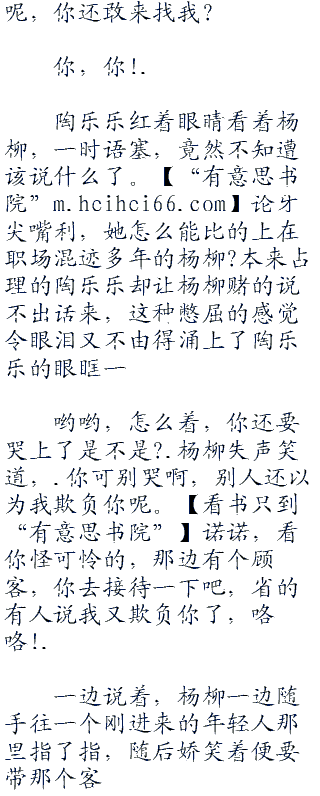 呢，你还敢来找我？
你，你！.
陶乐乐红着眼睛看着杨
柳，一时语塞，竟然不知道
该说什么了。【“有意思书
院”m.hcihci66.com】论牙
尖嘴利，她怎么能比的上在
职场混迹多年的杨柳？本来占
理的陶乐乐却让杨柳赌的说
不出话来，这种憋屈的感觉
令眼泪又不由得涌上了陶乐
乐的眼眶一
哟哟，怎么着，你还要
哭上了是不是？.杨柳失声笑
道，.你可别哭啊，别人还以
为我欺负你呢。【看书只到
“有意思书院”】诺诺，看
你怪可怜的，那边有个顾
客，你去接待一下吧，省的
有人说我又欺负你了，咯
咯！.
一边说着，杨柳一边随
手往一个刚进来的年轻人那
里指了指，随后娇笑着便要
带那个客